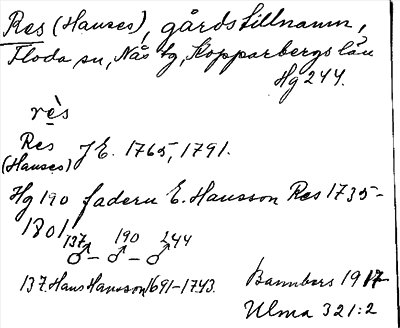 Res (Hanses), gårdstillnamn,
Floda sn, Nås tg, Kopparbergs län
Hg 244.
rès
Res
(Hanses) J E. 1765, 1791.
Hg 190 fadern E. Hansson Res 1735-
1801
137 190 244
♂ - ♂ - ♂
137. Hans Hansson 1691-1743.
Bannbers 1917
Ulma 321:2